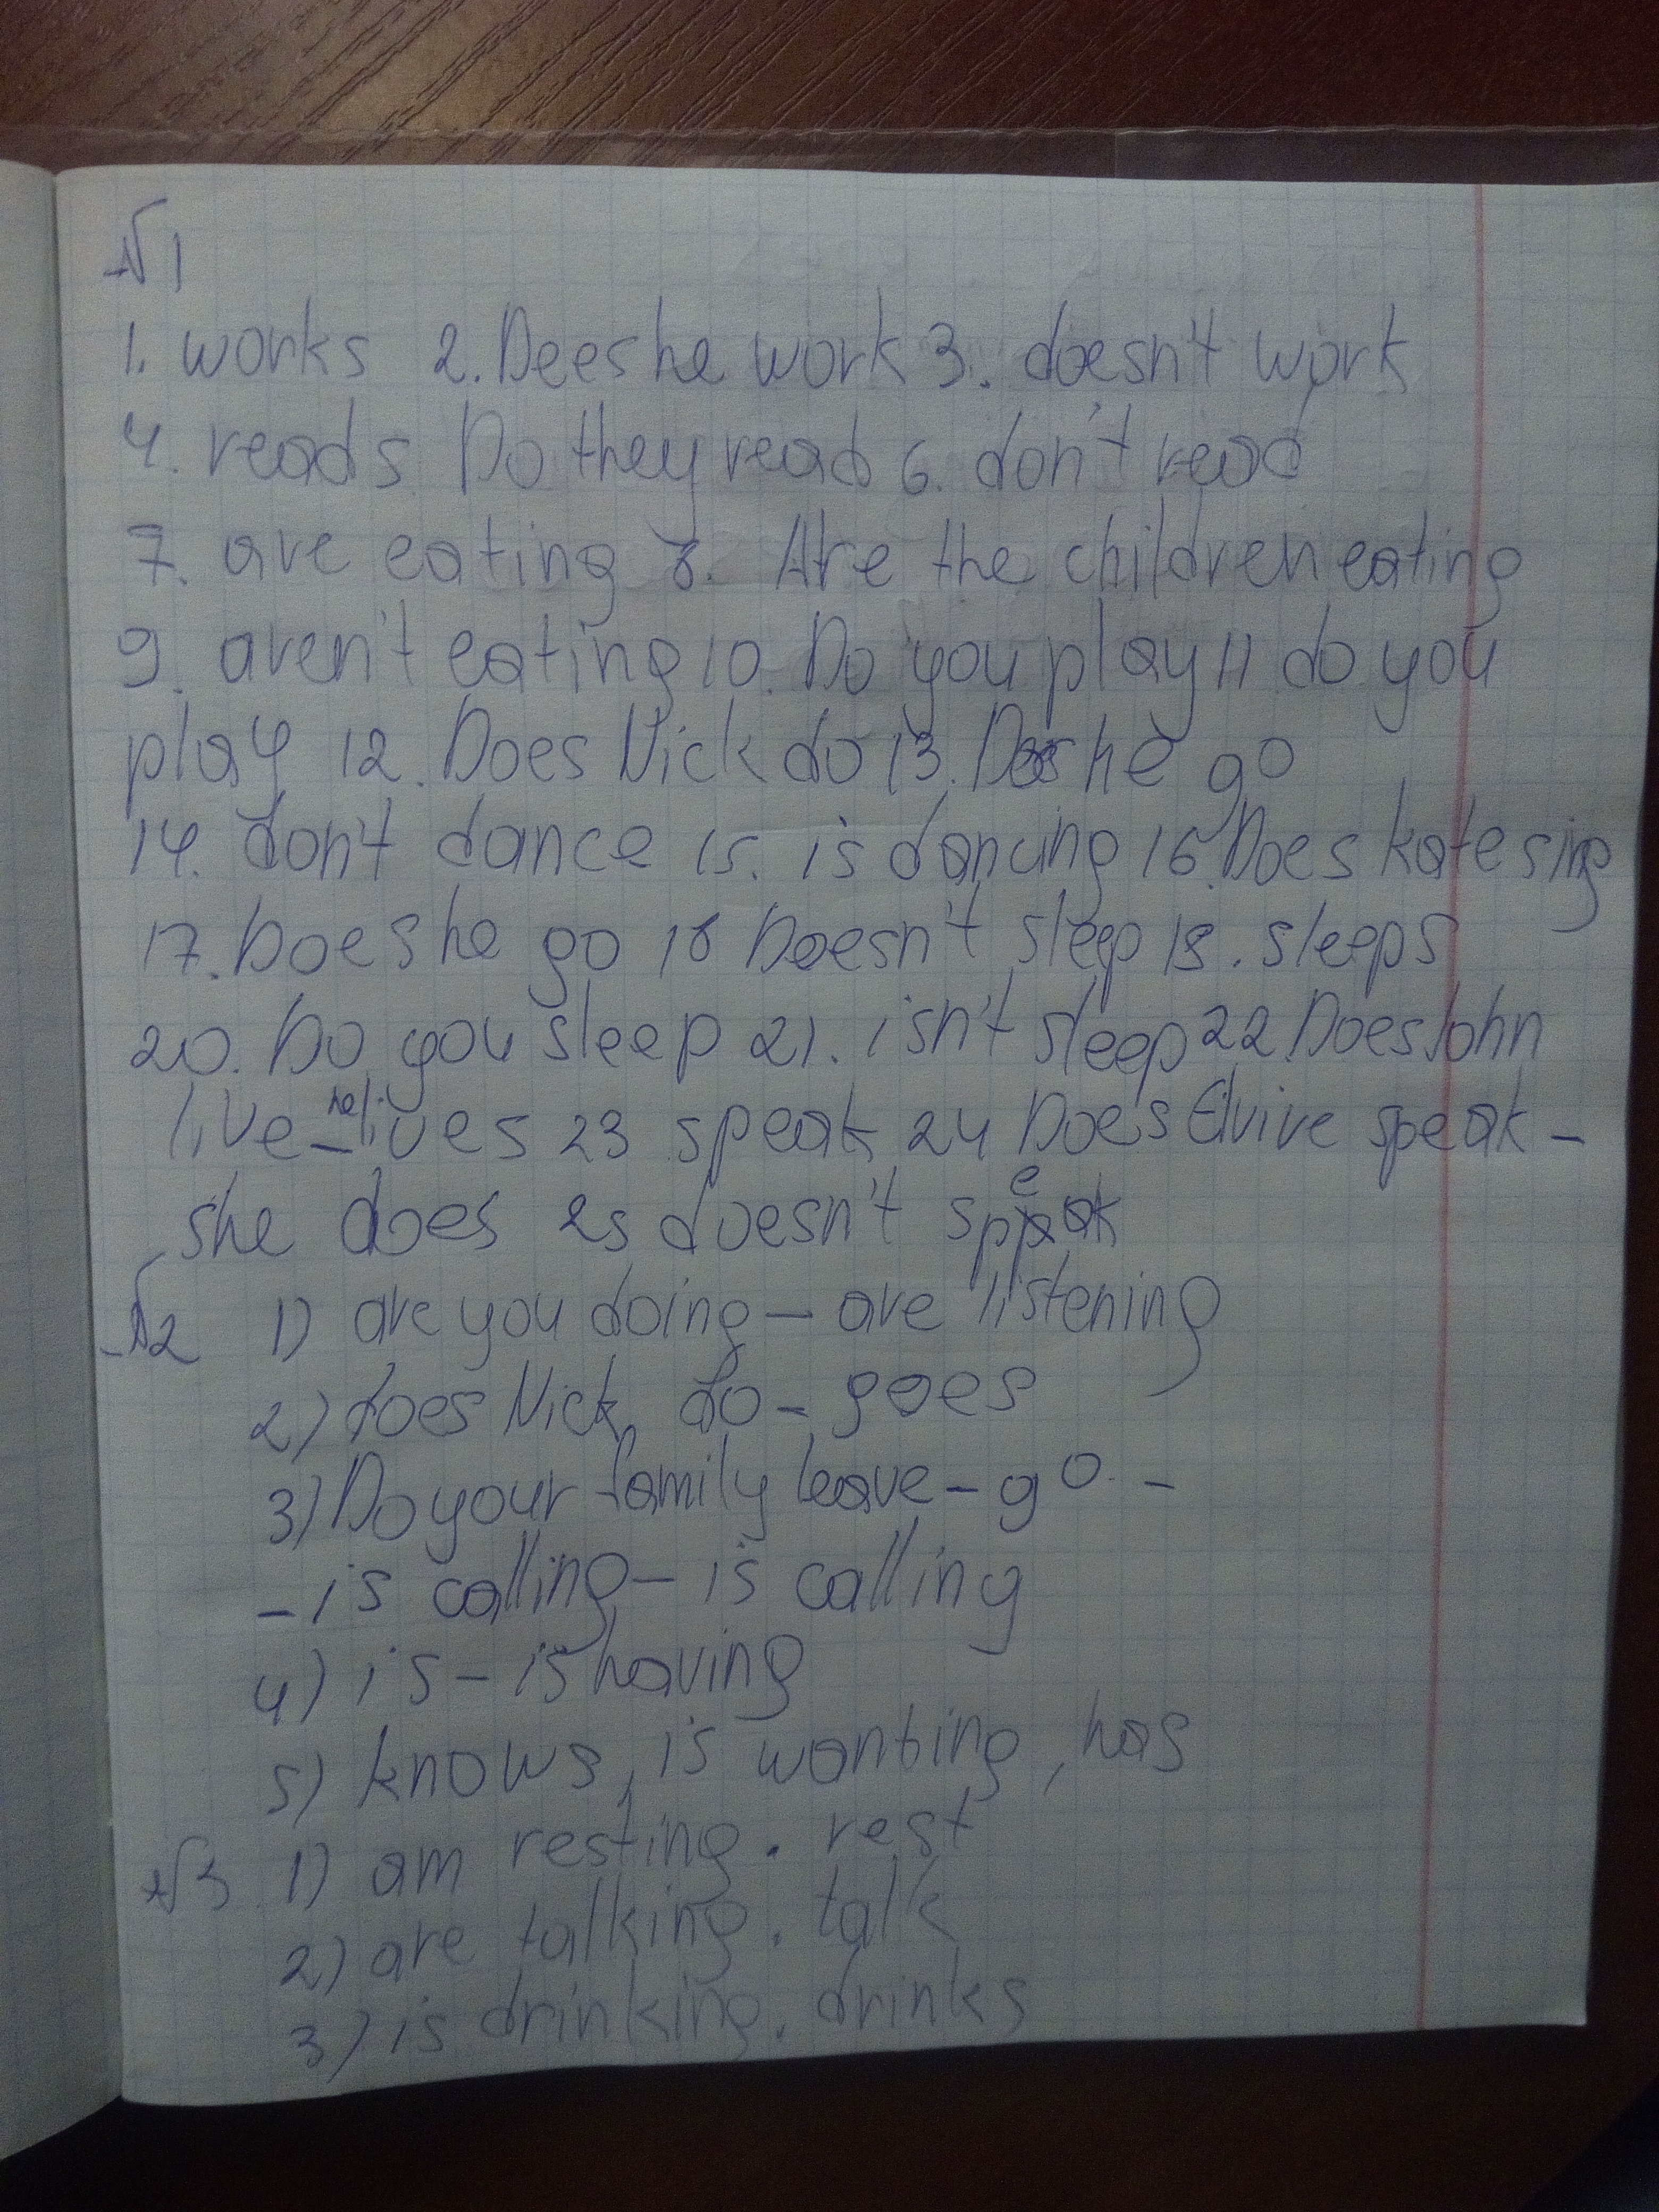 №1
1. works 2. Deeshe work 3. doesn't work
4. reads Do they read 6. don't read
7. are eating 8. Are the children eating
9. aren't eating 10. Do you play 11 do you
play 12. Does Nick do 13. Does he go
14. don't dance 15. is dancing 16. Does kate sing
17. Does he go 18 Doesn't sleep 19. sleeps
20. Do you sleep 21. isn't sleep 22. Does John
live – he lives 23 speak 24 Does Elvire speak –
she does 25 doesn't speak
№2 1) are you doing – are listening
2) does Nick do – goes
3) Do your family leave – go –
– is calling – is calling
4) is – is having
5) knows, is wanting, has
№3 1) am resting. rest
2) are talking. talk
3) is drinking. drinks